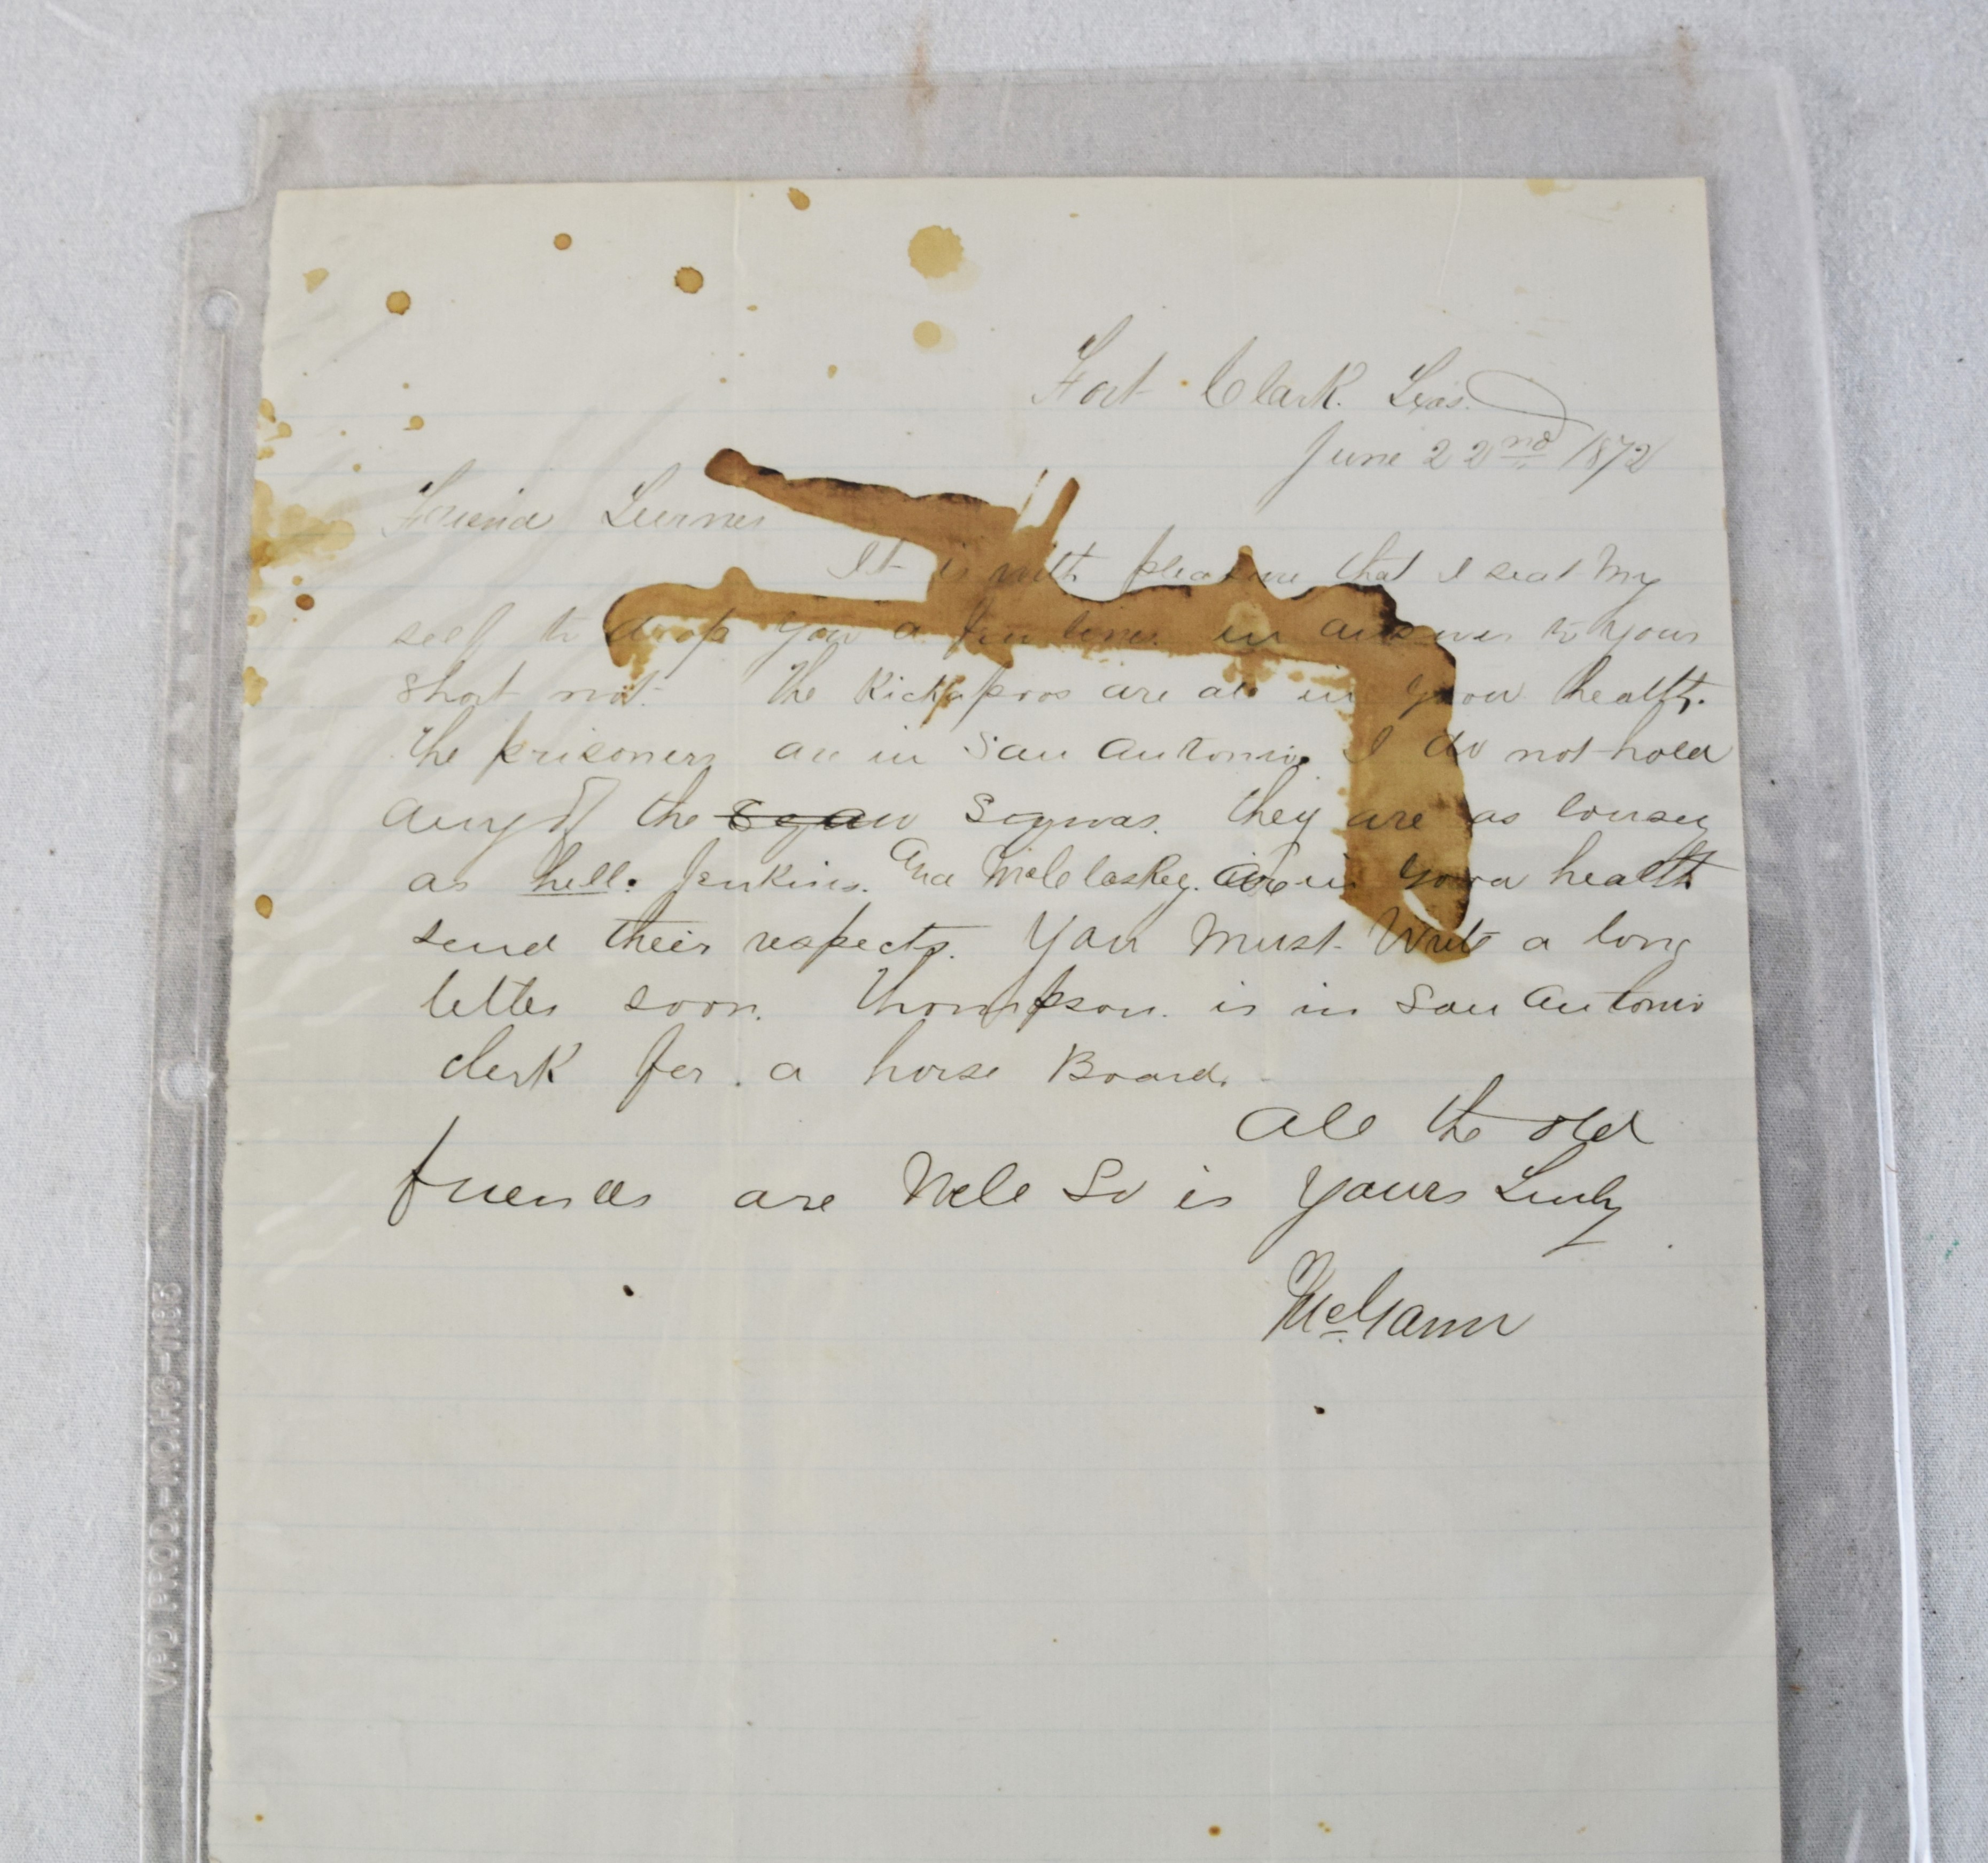 Fort Clark. Texas.
June 22nd 1872
Friend Turner
It is with pleasure that I seat My
self to drop you a few lines in answer to your
short not. The Kickapoos are all in good health.
The prisoners are in San Antonio. I do not hold
any of the Sqaw Sqwas. they are as lousey
as hell. Jenkins. And McClaskey. are in good health
send their respects. You Must Write a long
letter soon. Thompson. is in San Antonio
clerk for a horse Board.
All the old
friends are Well So is Yours Truly
McGann
VPD PROD.-NO.